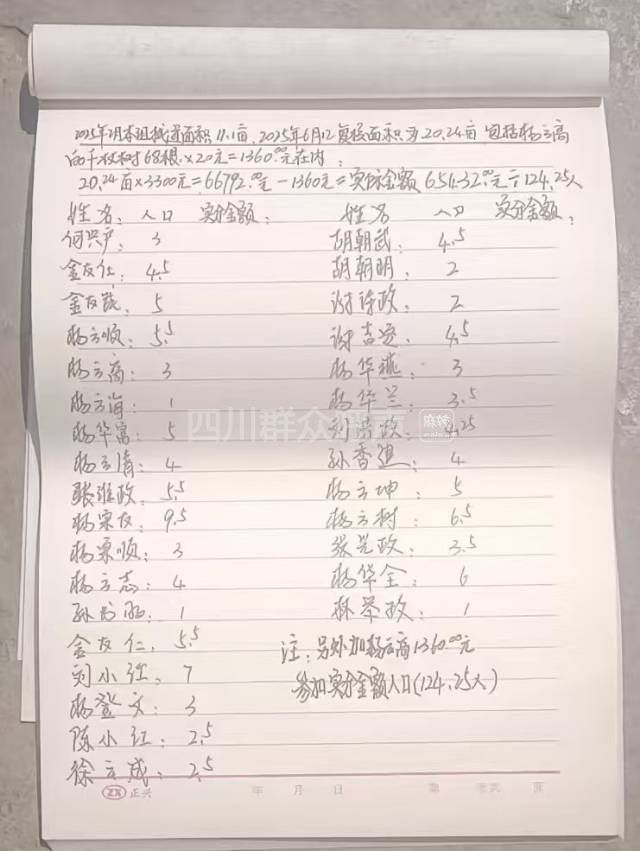 2025年2月本组栽蓝面积11.1亩,2025年6月12复核面积为20.24亩 包括杨立高
白千枝树68根×20元=1360.00元在内;
20.24亩×3300元=66792.00元-1360元=实际金额65432.00元÷124.25人
姓名: 人口 实分金额: 姓名 人口 实分金额:
何兴户: 3 胡朝武: 4.5
金友仁: 4.5 胡朝明: 2
金友 5 谢 政: 2
杨立顺: 5.5 谢吉 : 4.5
杨立高: 3 杨华燕: 3
杨立海: 1 杨华兰: 3.5
杨华富: 5 刘 政: 4.25
杨立清: 4 孙香 : 4
张维政: 5.5 杨立坤: 5
杨宗友: 9.5 杨立树: 6.5
杨宗顺: 3 张光政: 3.5
杨立志: 4 杨华全: 6
孙 : 1 林举政: 1
金友仁: 5.5 注:另外加杨立高1360.00元
刘小红: 7 参加实分金额人口(124.25人)
杨登文: 3
陈小红: 2.5
徐立成: 2.5
四川群众
麻辣
ZX 正兴 年 月 日 第 页